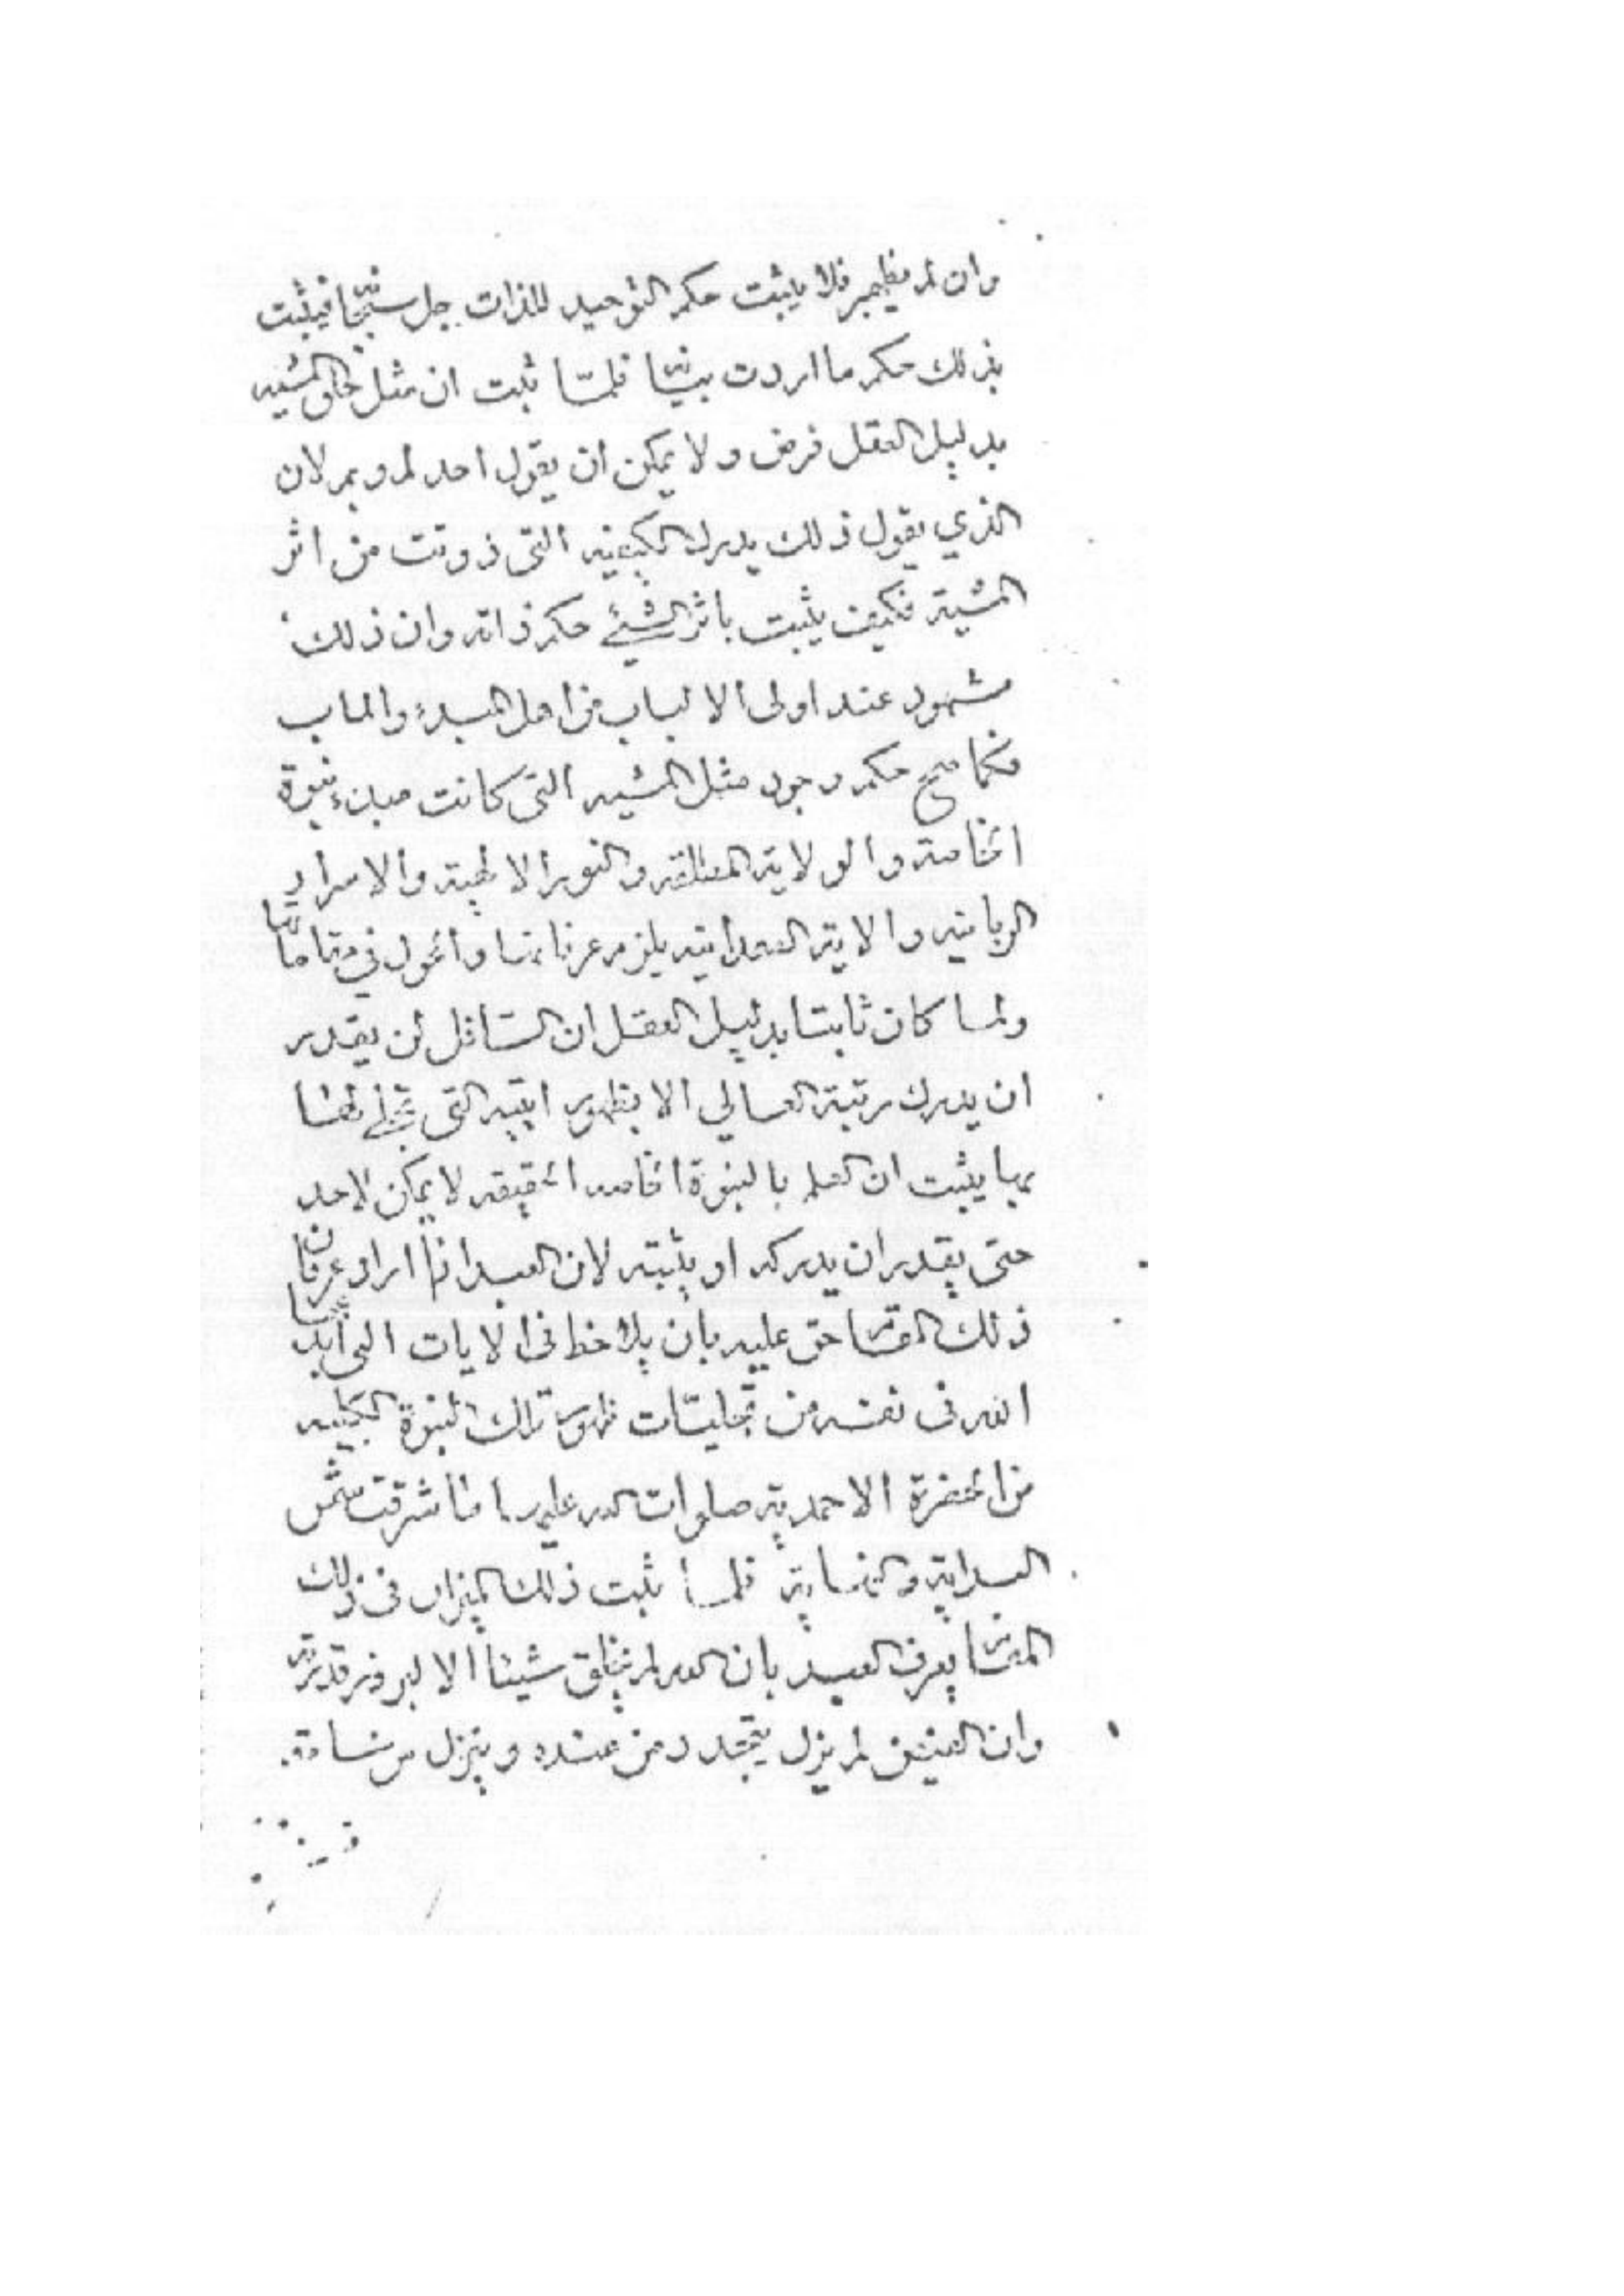 وان لم يظهر فلا يثبت حكم التوحيد للذات جل سبحانه فيثبت
بذلك حكم ما اردت بيانه فلمّا ثبت ان مثل خلق المشيه
بدليل العقل فرض ولا يمكن ان يقول احد لم وبم لان
الذي يقول ذلك يدرك الكيفيه التى ذوتت من اثر
المشية فكيف يثبت باثر الشيئ حكم ذاته وان ذلك
مشهود عند اولى الالباب من اهل المبدء والماب
فكما صح حكم وجود مثل المشيه التى كانت مبدء نبوة
الخاصة والولاية المطلقه والنور الالهية والاسرار
الربانيه والاية الصمدانيه يلزم عرفانها واقول في مقاماتها
ولما كان ثابتا بدليل العقل ان السّافل لن يقدر
ان يدرك رتبة العالي الا بظهور ايته التى تجلى لها
بها يثبت ان العلم بالنبوة الخاصه الحقيقه لا يمكن لاحد
حتى يقدر ان يدركه او يثبته لان العبد اذا اراد عرفان
ذلك المقام حق عليه بان يلاحظ فى الايات التى ابدعها
الله فى نفسه من تجليّات ظهور تلك النبوة الكليه
من الحضرة الاحمدية صلوات الله عليه ما اشرقت شمس
البداية والنهاية فلما ثبت ذلك الميزان فى ذلك
المقام يعرف العبد بان الله لم يخلق شيئا الا لبروز قدرته
وان الفيض لم يزل يتجدد من عنده وينزل من ساحة